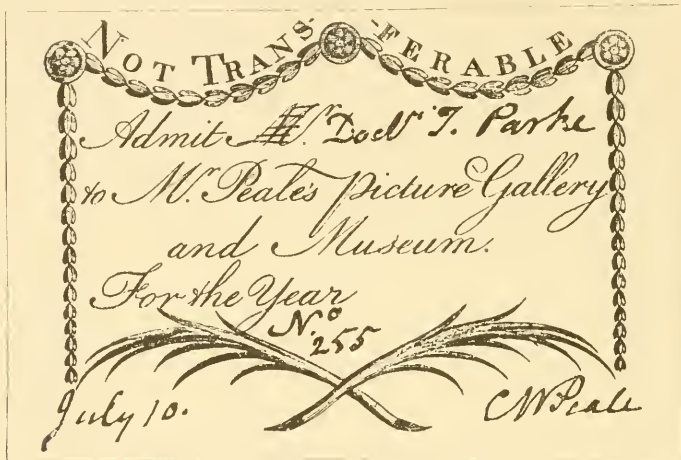 NOT TRANSFERABLE
Admit Mr. Doctr T. Parke
to Mr. Peale's Picture Gallery
and Museum.
For the Year
No. 255
July 10. CWPeale